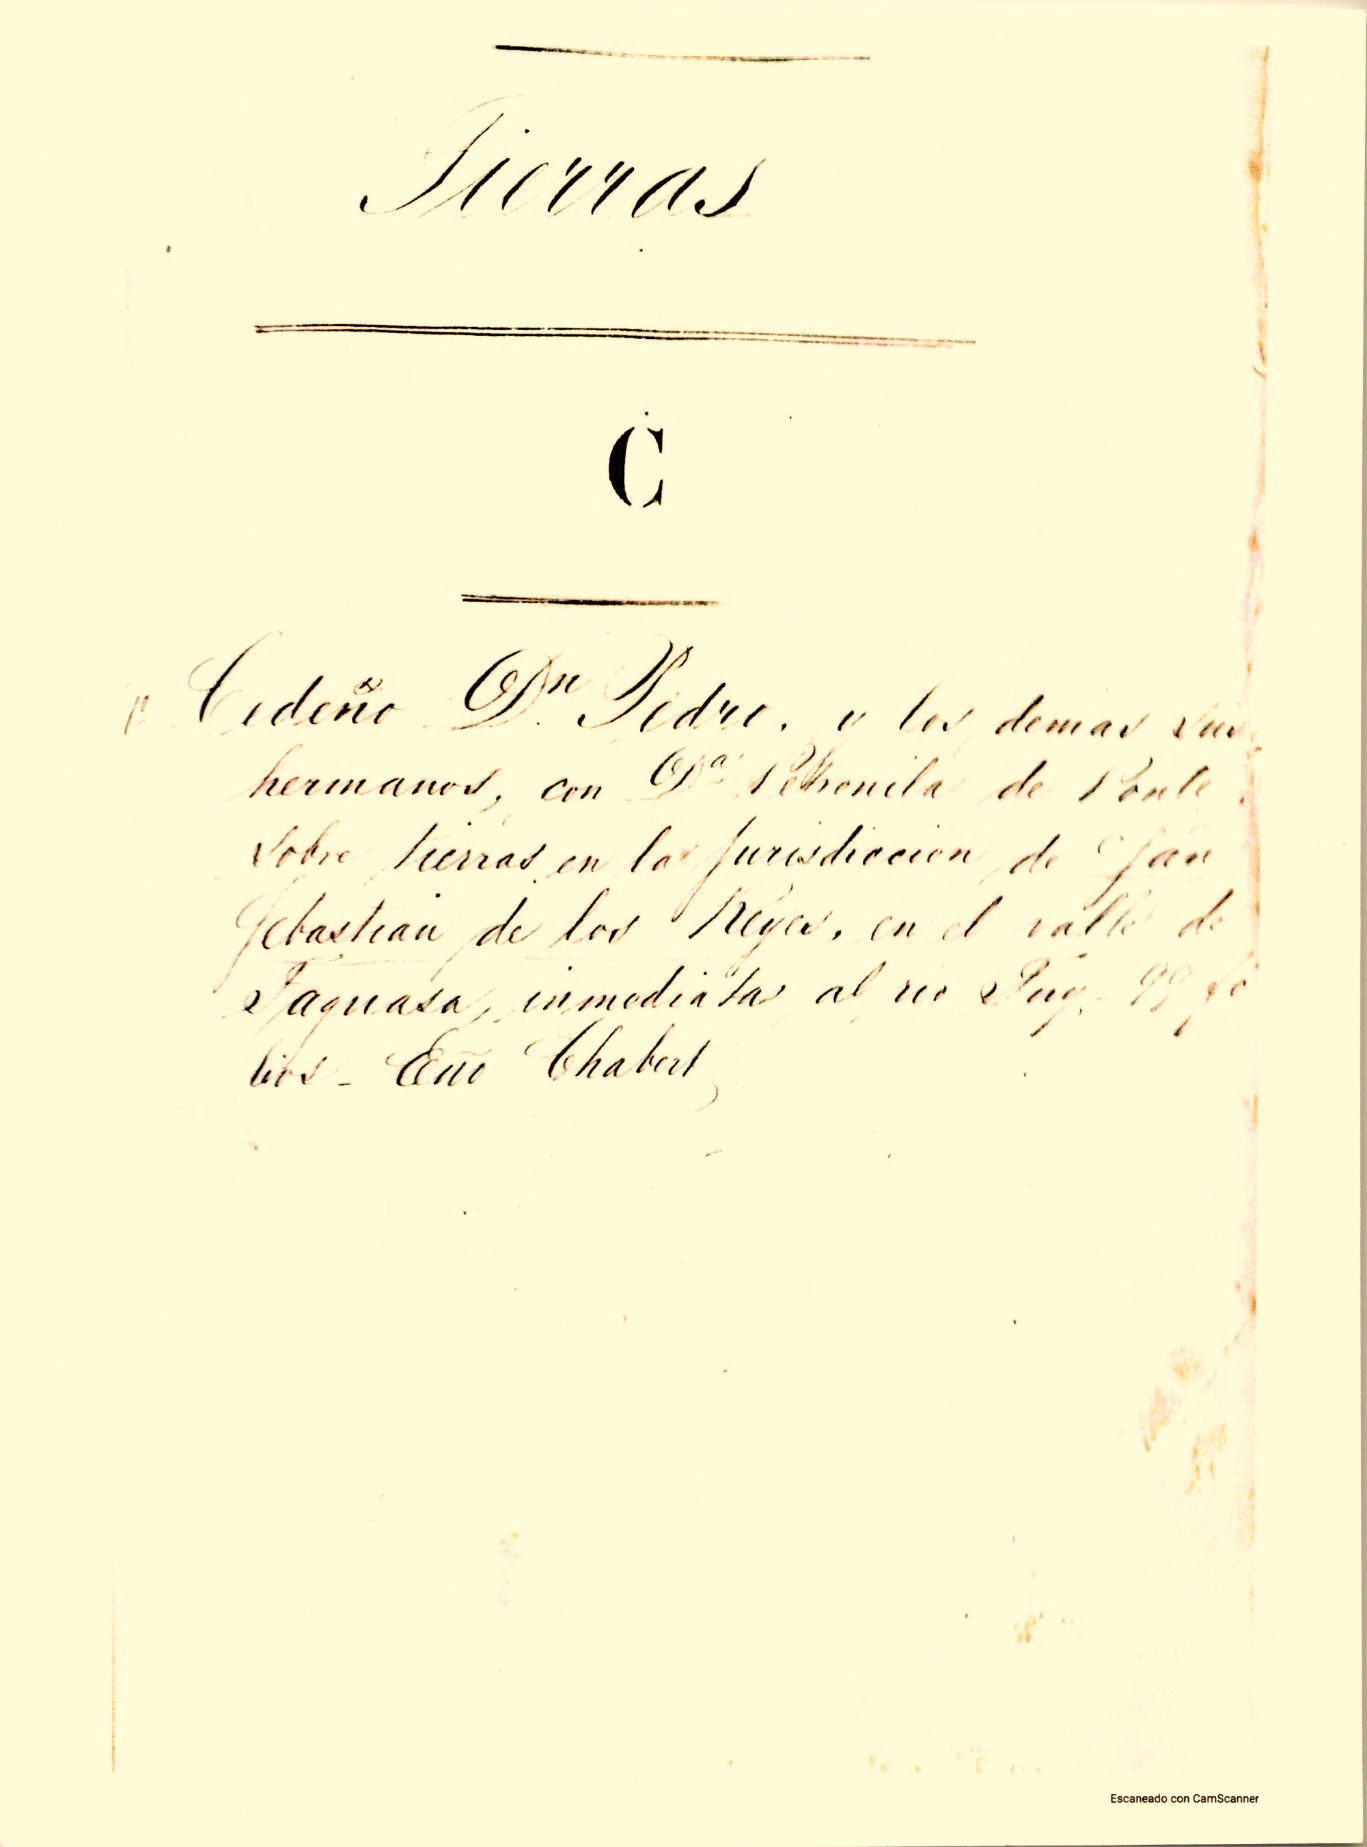 Tierras
C
Cedeño Dn Pedro. y los demas sus
hermanos, con Da Petronila de Ponte
sobre tierras en la Jurisdiccion de San
Sebastian de los Reyes, en el valle de
Taguasa, inmediatas al rio Tuy. 99 fo
lios - Eno Chabert
Escaneado con CamScanner